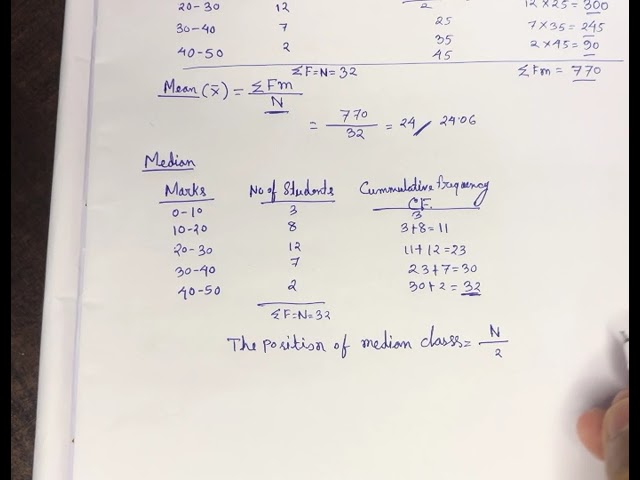 20-30 12 2 12 × 25 = 300
30-40 7 25 7 × 35 = 245
40-50 2 35 2 × 45 = 90
45
ΣF=N=32 ΣFm = 770
Mean (x̄) = ΣFm / N
= 770 / 32 = 24 / 24.06
Median
Marks No of Students Cummulative frequency CF.
0-10 3 3
10-20 8 3+8=11
20-30 12 11+12=23
30-40 7 23+7=30
40-50 2 30+2=32
ΣF=N=32
The position of median class= N / 2